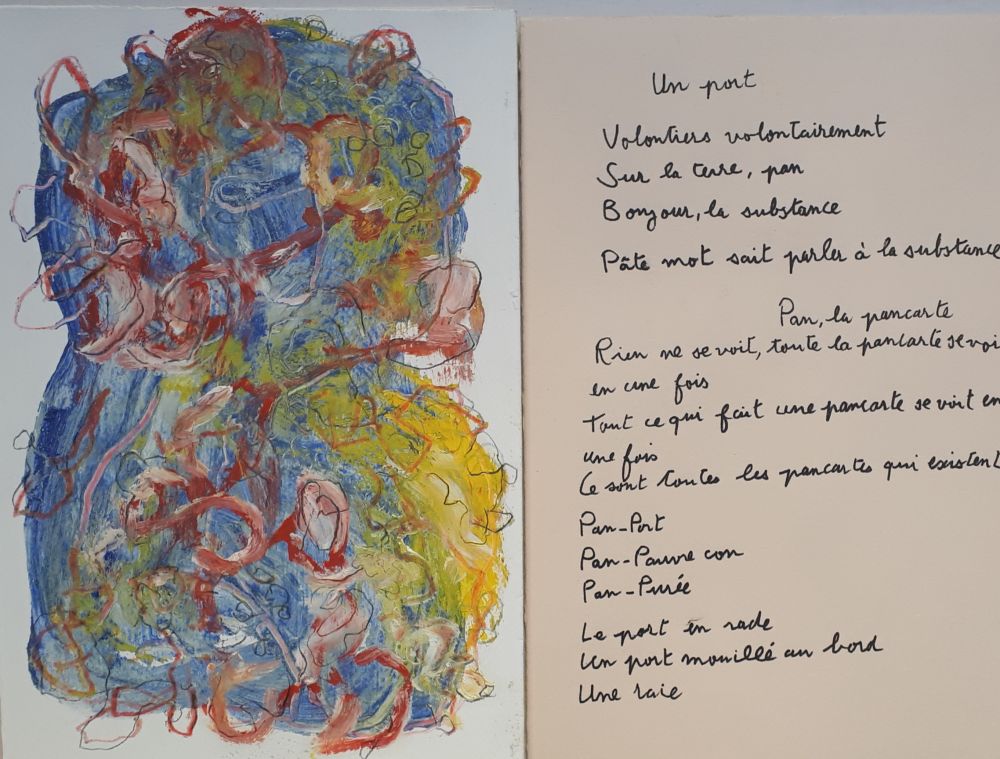 Un port
Volontiers volontairement
Sur la terre, pan
Bonjour, la substance
Pâte mot sait parler à la substance
Pan, la pancarte
Rien ne se voit, toute la pancarte se voi
en une fois
Tout ce qui fait une pancarte se voit en
une fois
Ce sont toutes les pancartes qui existent
Pan-Port
Pan-Pauvre con
Pan-Purée
Le port en rade
Un port mouillé au bord
Une raie